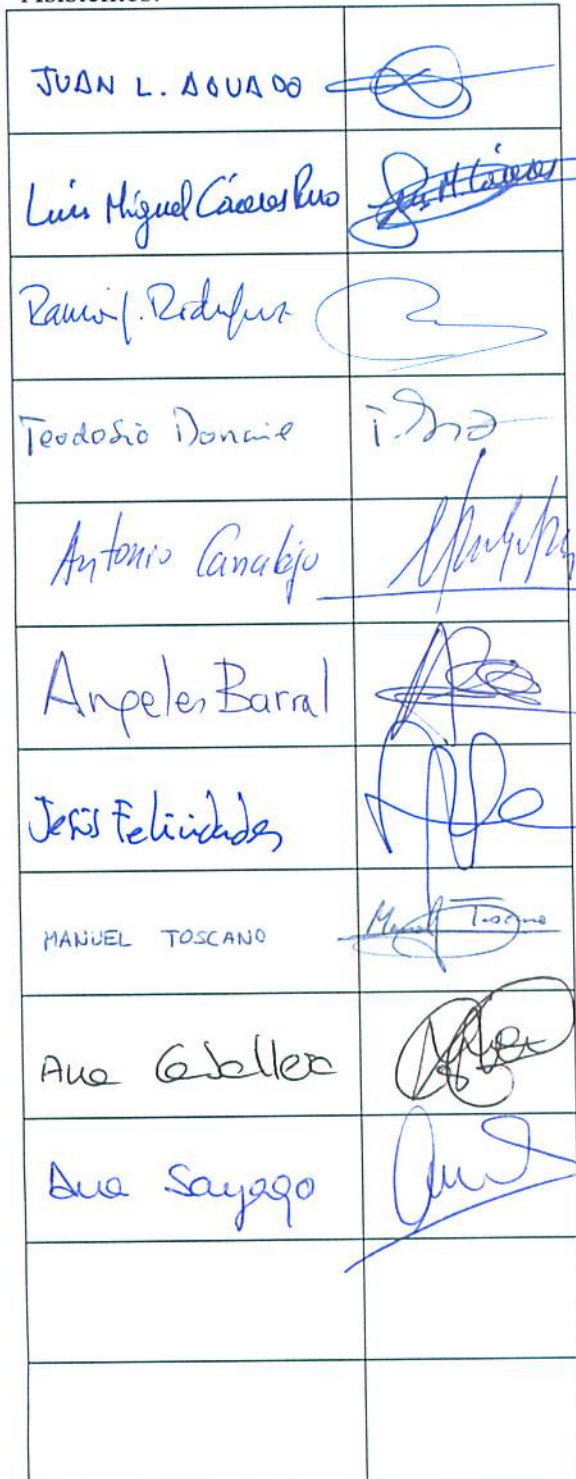 Asistentes:
JUAN L. AGUADO
Luis Miguel Cáceres Puro Luis M Cáceres
Ramón J. Rodríguez
Teodosio Donaire
Antonio Canalejo
Angeles Barral
Jesús Felicidades
MANUEL TOSCANO Manuel Toscano
Ana Caballero
Ana Sayago